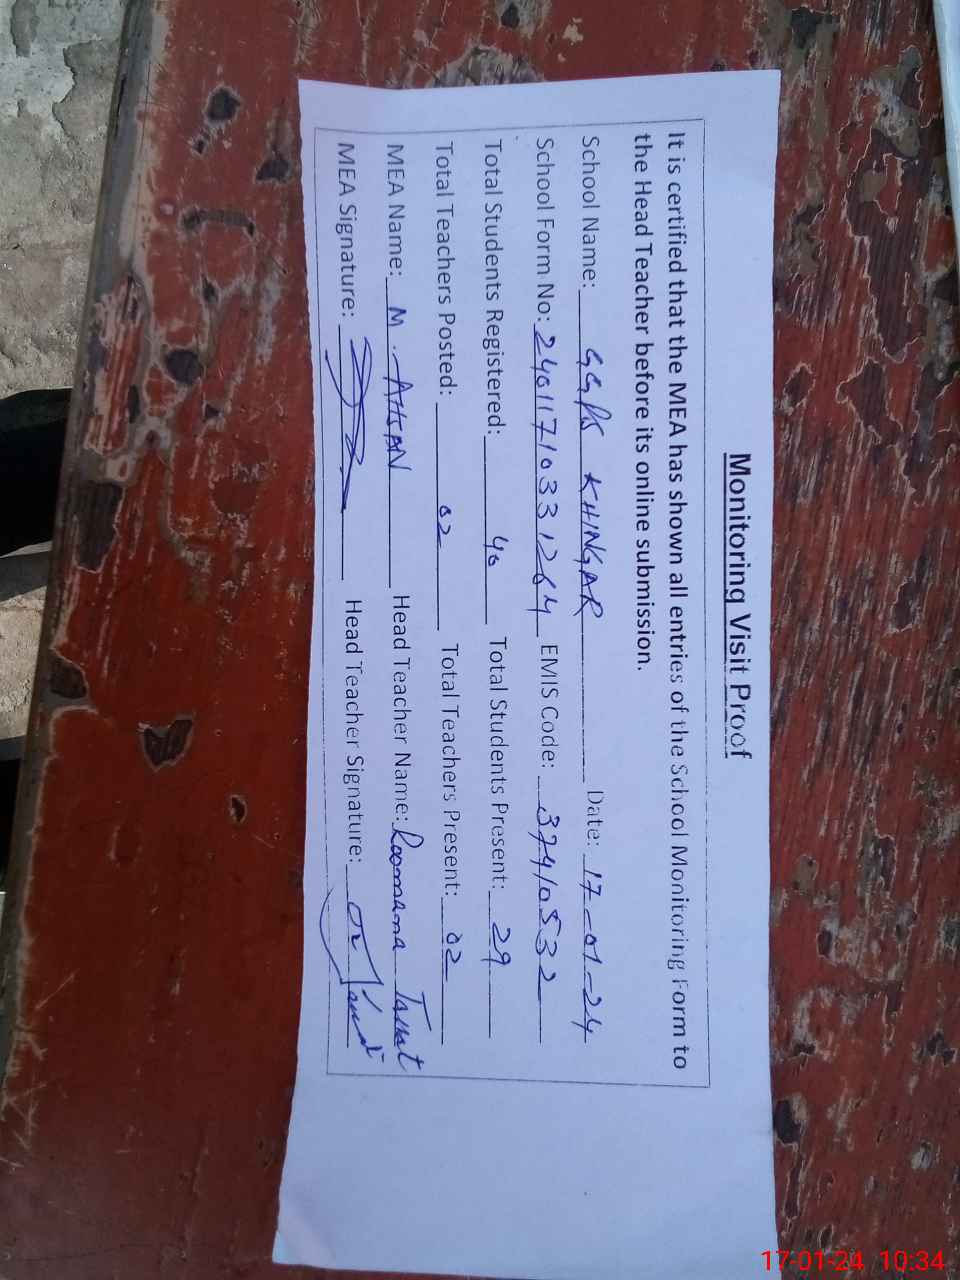 Monitoring Visit Proof
It is certified that the MEA has shown all entries of the School Monitoring Form to
the Head Teacher before its online submission.
School Name: GGPS KHINGAR Date: 17-01-24
School Form No: 24011710331264 EMIS Code: 37410532
Total Students Registered: 40 Total Students Present: 29
Total Teachers Posted: 02 Total Teachers Present: 02
MEA Name: M. AHSAN Head Teacher Name: Roomana Talat
MEA Signature: Head Teacher Signature:
17-01-24 10:34